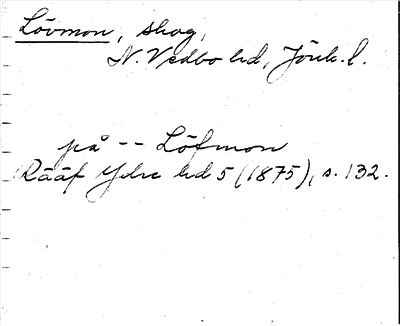 Lövmon, skog,
N. Vedbo hd, Jönk. l.
på -- Löfmon
Rääf Ydre hd 5 (1875), s. 132.